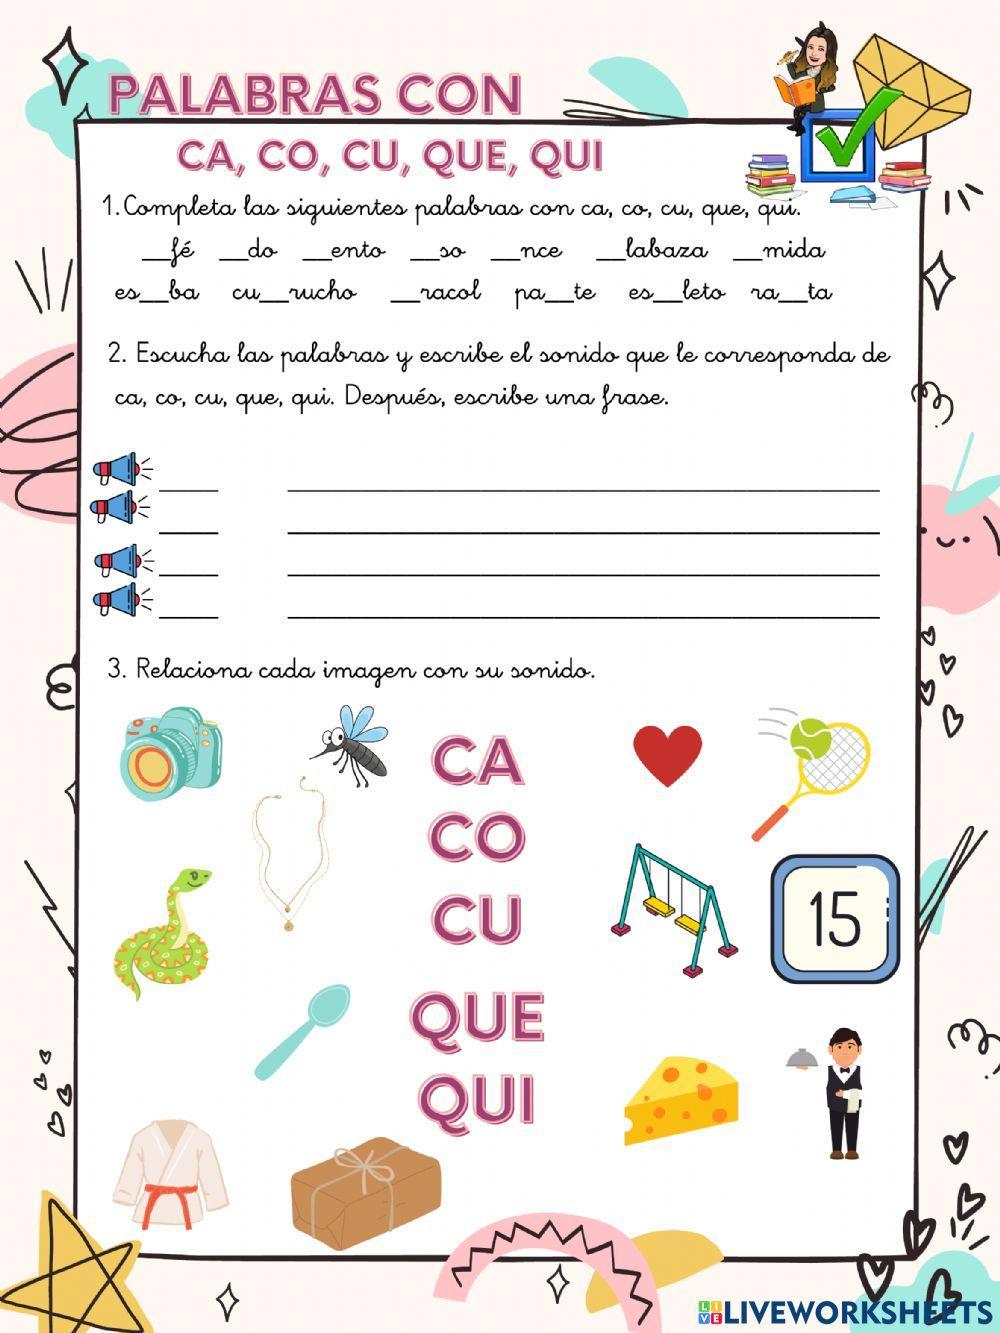 PALABRAS CON
CA, CO, CU, QUE, QUI
1. Completa las siguientes palabras con ca, co, cu, que, qui.
__fé __do __ento __so __nce __labaza __mida
es__ba cu__rucho __racol pa__te es__leto ra__ta
2. Escucha las palabras y escribe el sonido que le corresponda de
ca, co, cu, que, qui. Después, escribe una frase.
3. Relaciona cada imagen con su sonido.
CA
CO
CU
QUE
QUI
15
LIVE LIVEWORKSHEETS